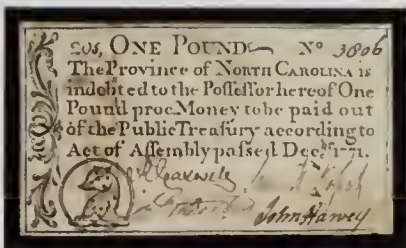 20s, ONE POUND Nº 3806
The Province of NORTH CAROLINA is
indebted to the Poſſeſſor hereof One
Pound proc. Money to be paid out
of the Public Treaſury according to
Act of Aſſembly paſsed Dec. 1771.
John Harvey